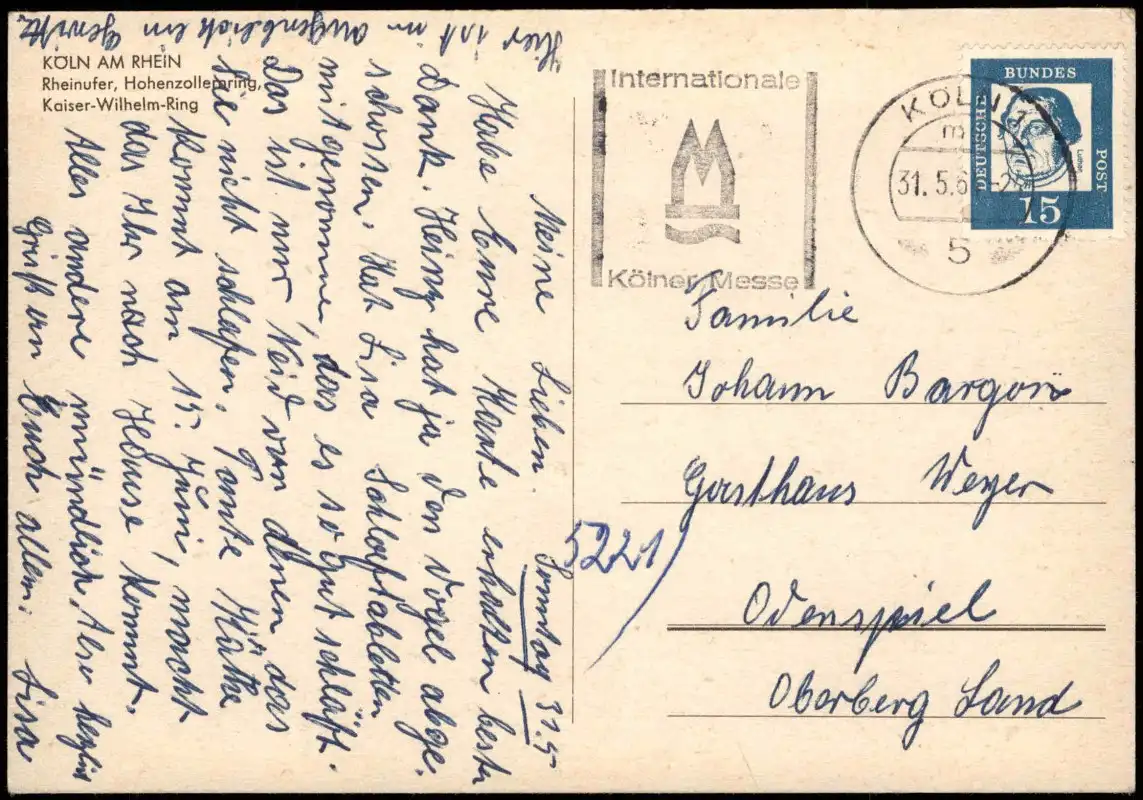 KÖLN AM RHEIN
Rheinufer, Hohenzollernring,
Kaiser-Wilhelm-Ring
Internationale
Kölner Messe
KÖLN
m
31.5.6
5
DEUTSCHE
BUNDES
POST
15
Familie
Johann Bargon
Gasthaus Weyer
5221
Odenspiel
Oberberg Land
Sonntag 31.5
Meine Lieben.
Habe Eure Karte erhalten besten
Dank. Heinz hat ja den Vogel abge-
schossen. Hat Lisa Schlaftabletten
mitgenommen, das es so gut schläft.
Das ist nur Neid von Ihnen, das
Sie nicht schlafen. Tante Käthe
kommt am 15. Juni, macht
das Ihr nach Hause kommt.
Alles andere mündlich. Also herzlich
Grüß an Euch allem. Lisa
Hier ist im augenblick ein Gewitter